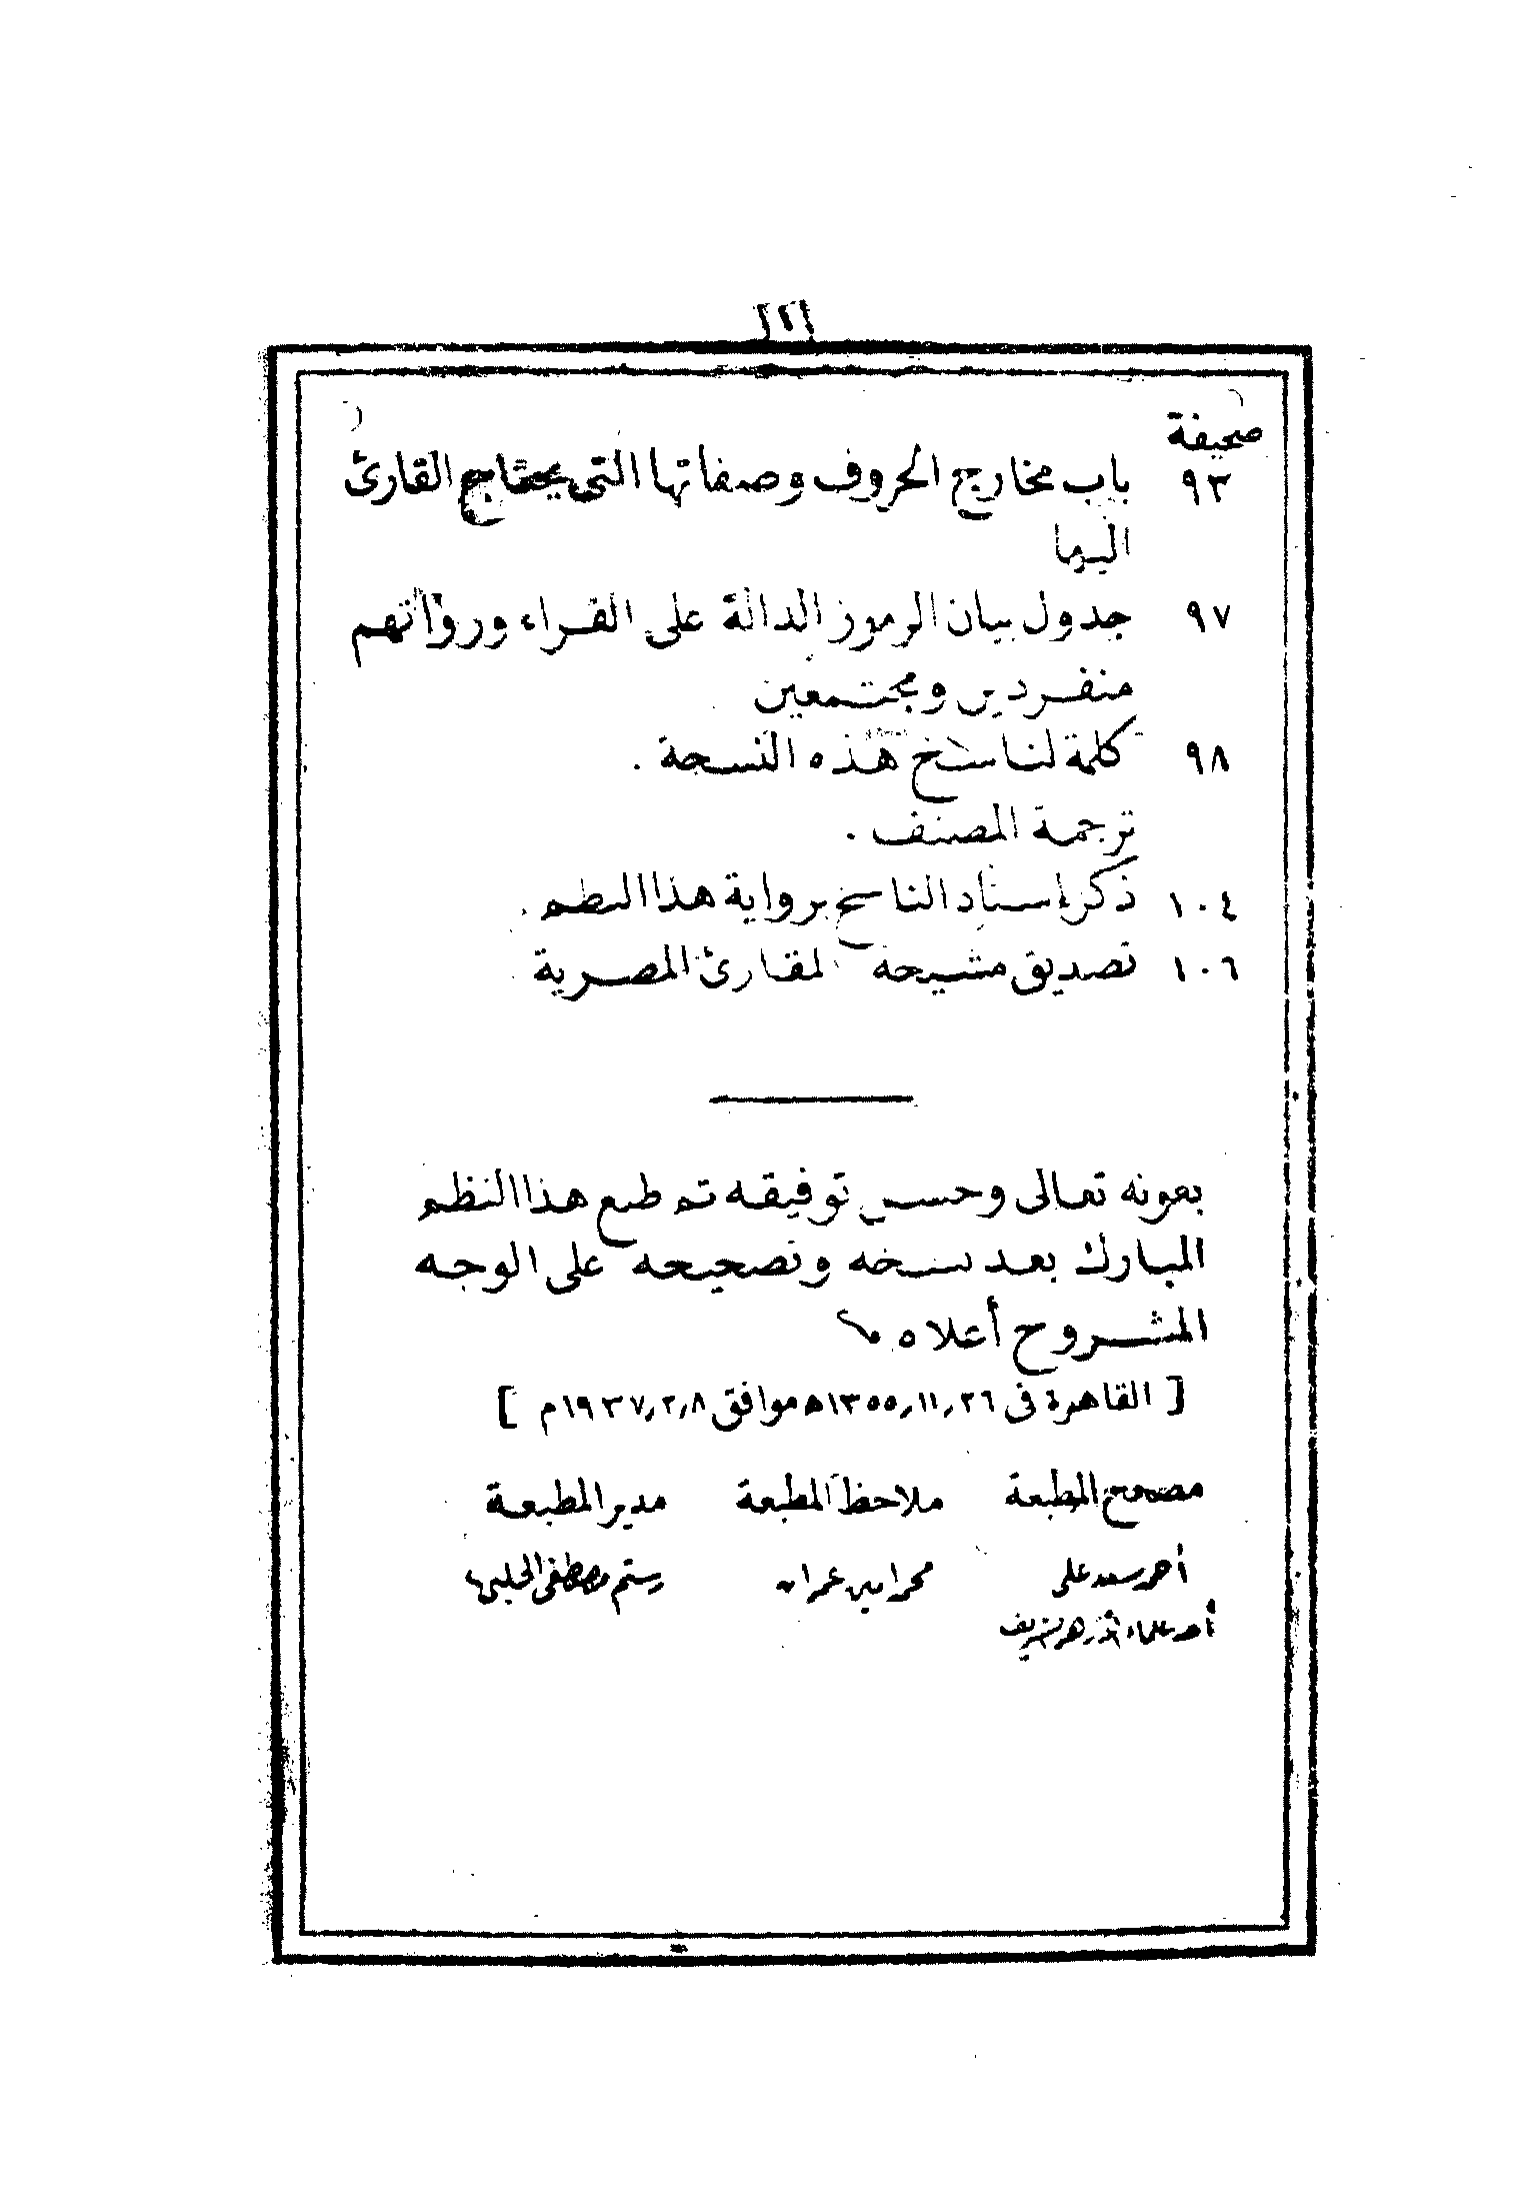 صحيفة
٩٣ باب مخارج الحروف وصفاتها التى يحتاج القارئ
اليها
٩٧ جدول بيان الرموز الدالة على القراء ورواتهم
منفردين ومجتمعين
٩٨ كلمة لناسخ هذه النسخة .
ترجمة المصنف .
١٠٤ ذكر إسناد الناسخ برواية هذا النظم .
١٠٦ تصديق مشيخة المقارئ المصرية
بعونه تعالى وحسن توفيقه تم طبع هذا النظم
المبارك بعد نسخه وتصحيحه على الوجه
المشروح أعلاه
[ القاهرة فى ٢٦ر١١ر١٣٥٥ه موافق ٨ر٢ر١٩٣٧م ]
مصحح المطبعة ملاحظ المطبعة مدير المطبعة
أحمد سعد على محمد امين عمران رستم مصطفى الحلبى
أحد علماء الأزهر الشريف